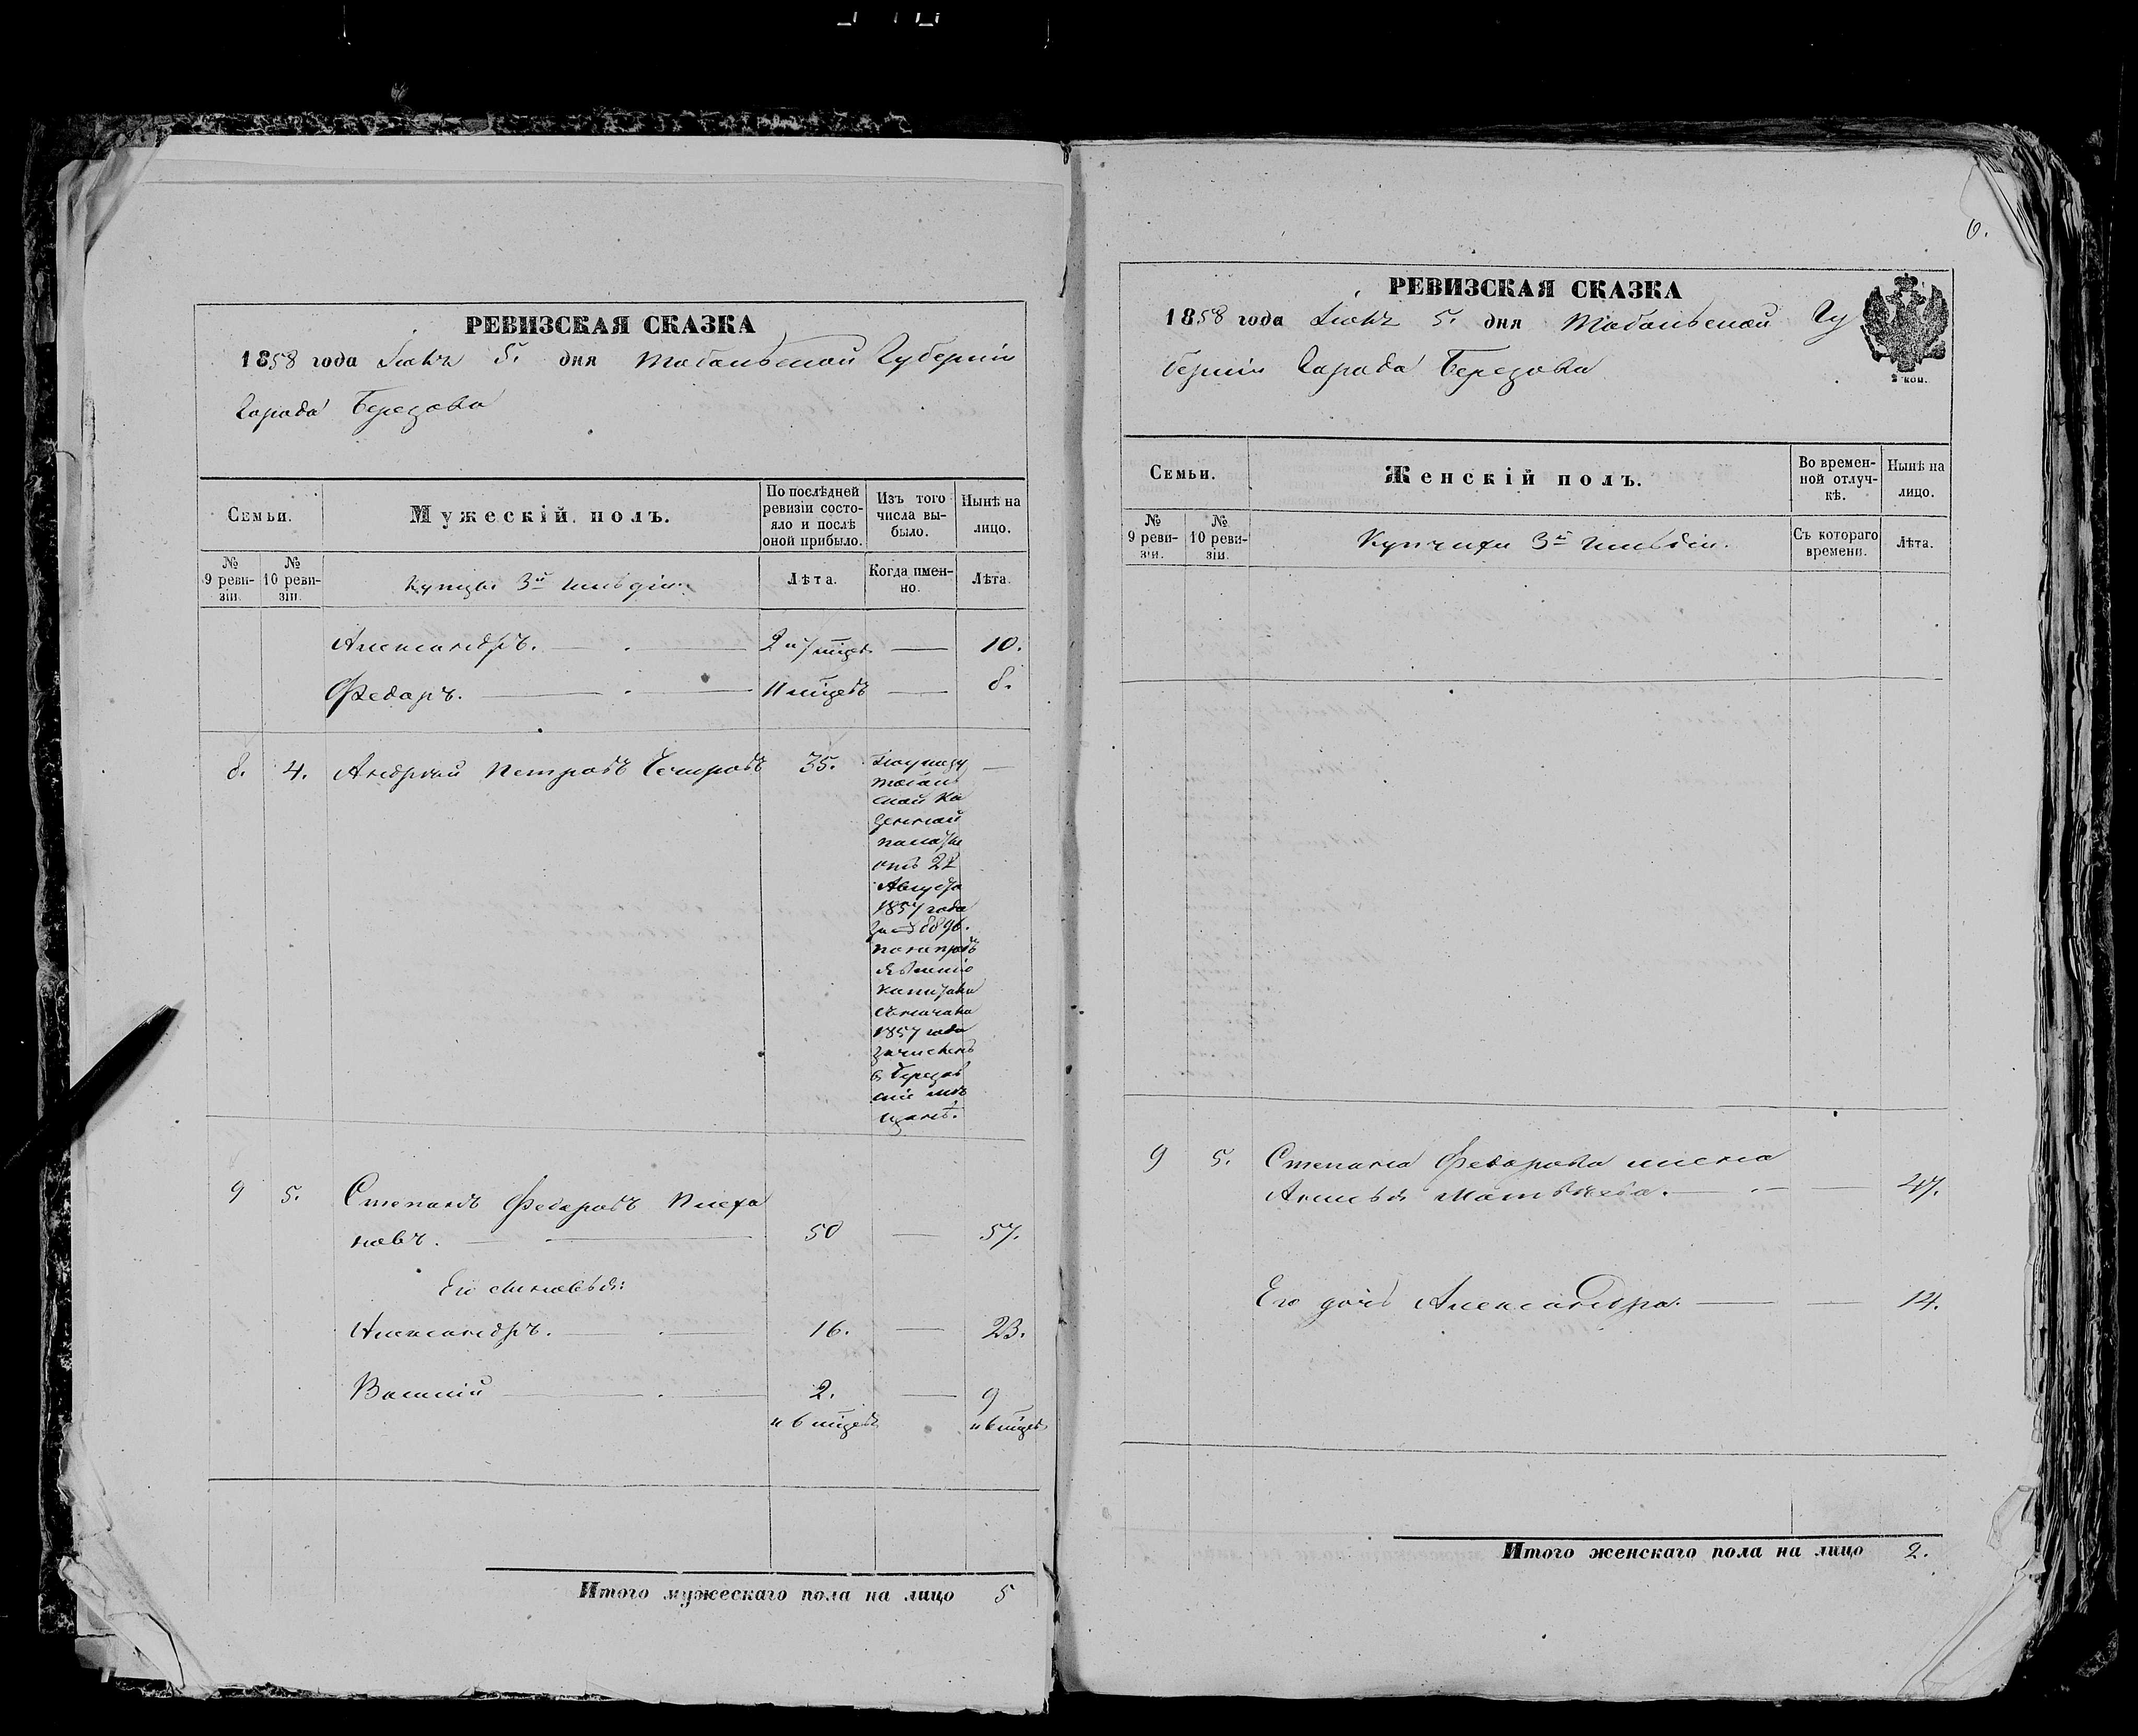 РЕВИЗСКАЯ СКАЗКА
1858 года Іюня 5. дня Тобольской Губерніи
Города Березова
Семьи.
Мужескій полъ.
По послѣдней ревизіи состояло и послѣ оной прибыло.
Изъ того числа выбыло.
Нынѣ на лицо.
№ 9 ревизіи.
№ 10 ревизіи.
Купцы 3й гильдіи.
Лѣта.
Когда именно.
Лѣта.
Александръ. 2 и 7 мцев — 10.
Федоръ. 11 мцевъ — 8.
8. 4. Андрей Петровъ 35. —
По указу
Тоболь
ской Ка
зенной
палаты
отъ 22
Августа
1857 года
за № 8896.
по непредъ
явленію
капитала
съ начала
1857 года
зачисленъ
в Березов
скіе мѣ
щане.
9 5. Степанъ Федоровъ Плеха
новъ. 50 — 57.
Его сыновья:
Александръ. 16. — 23.
Василій 2. — 9
и 6 мцевъ и 6 мцев
Итого мужескаго пола на лицо 5
6.
РЕВИЗСКАЯ СКАЗКА
1858 года Іюня 5. дня Тобольской Гу
берніи Города Березова
2 коп.
Семьи.
Женскій полъ.
Во временной отлучкѣ.
Нынѣ на лицо.
№ 9 ревизіи.
№ 10 ревизіи.
Купчихи 3й гильдіи.
Съ котораго времени.
Лѣта.
9 5. Степана Федорова жена
Матвѣева. — 47.
Его дочь Александра. — 14.
Итого женскаго пола на лицо 2.